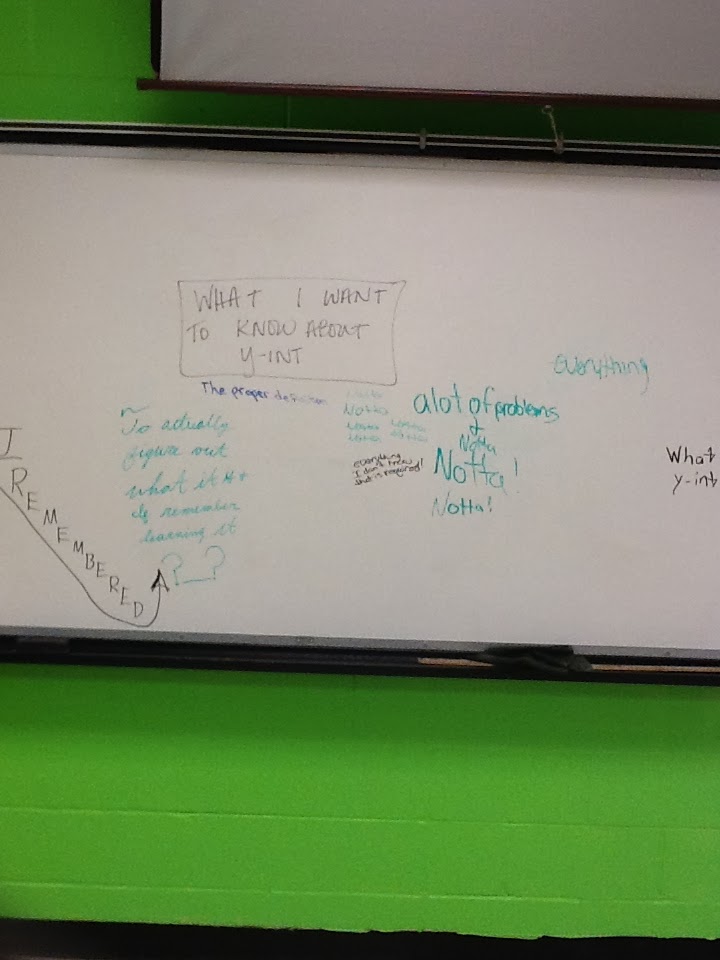 WHAT I WANT
TO KNOW ABOUT
Y-INT
The proper definition
Notta
Notta
Notta Notta
everything
I don't know
that is required!
alot of problems
Notta
Notta!
Notta!
everything
To actually
figure out
what it
remember
learning it
?_?
I
REMEMBERED
What
y-int